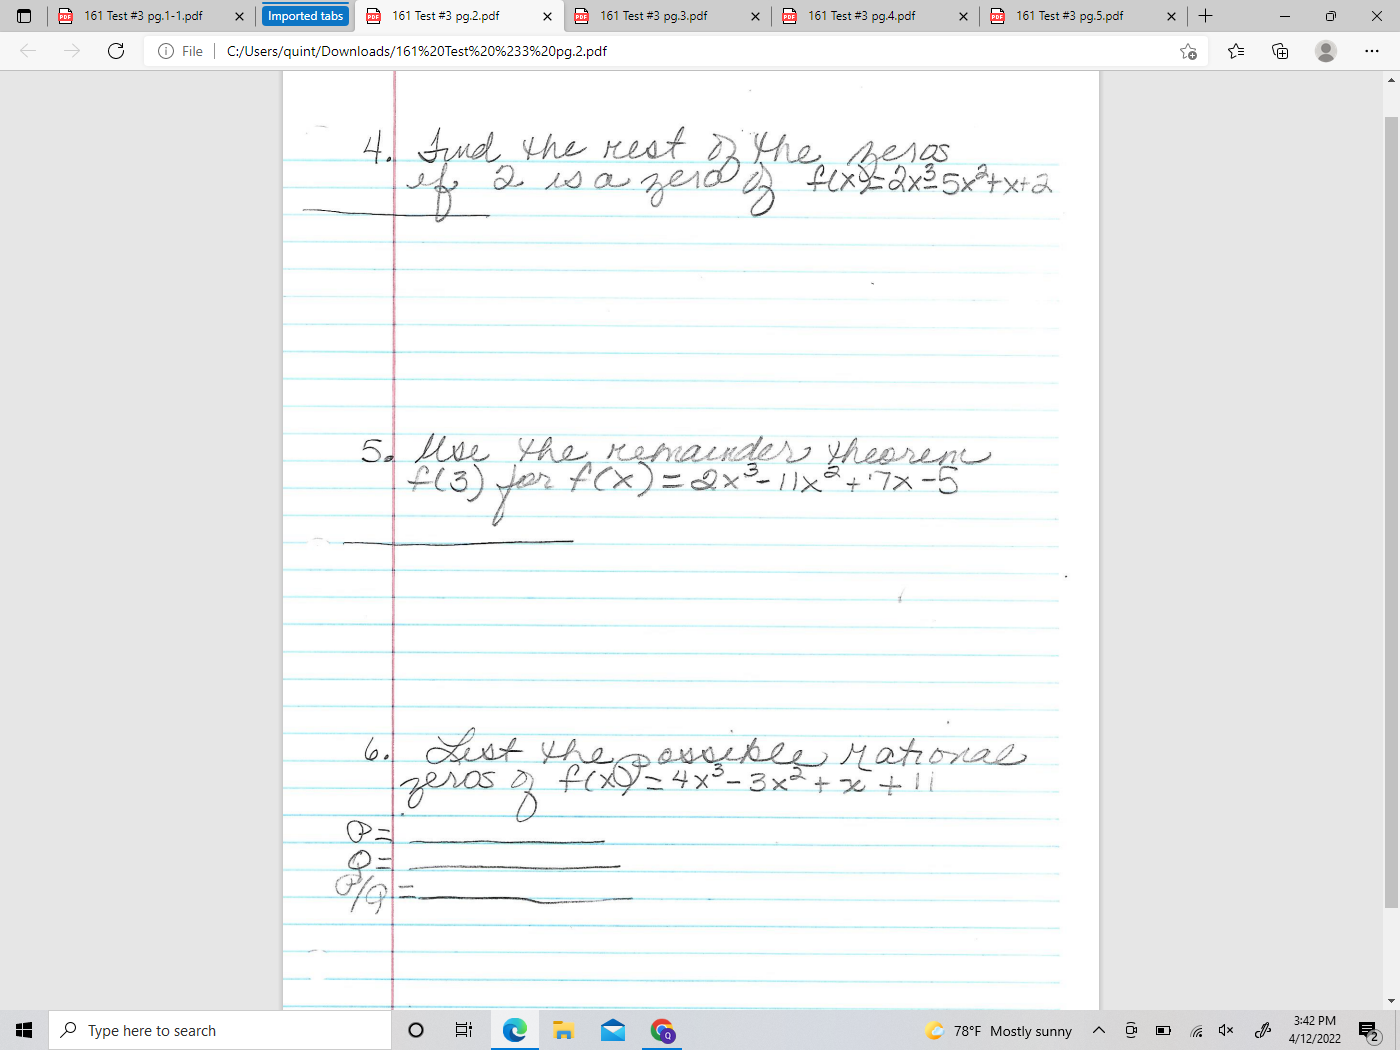 161 Test #3 pg.1-1.pdf
Imported tabs
161 Test #3 pg.2.pdf
161 Test #3 pg.3.pdf
161 Test #3 pg.4.pdf
161 Test #3 pg.5.pdf
File
C:/Users/quint/Downloads/161%20Test%20%233%20pg.2.pdf
4. Find the rest of the zeros
if 2 is a zero of f(x)=2x³-5x²+x+2
5. Use the remainder theorem
f(3) for f(x)=2x³-11x²+7x-5
6. List the possible rational
zeros of f(x)=4x³-3x²+x+11
P=
Q=
P/Q=
Type here to search
78°F Mostly sunny
3:42 PM
4/12/2022
2